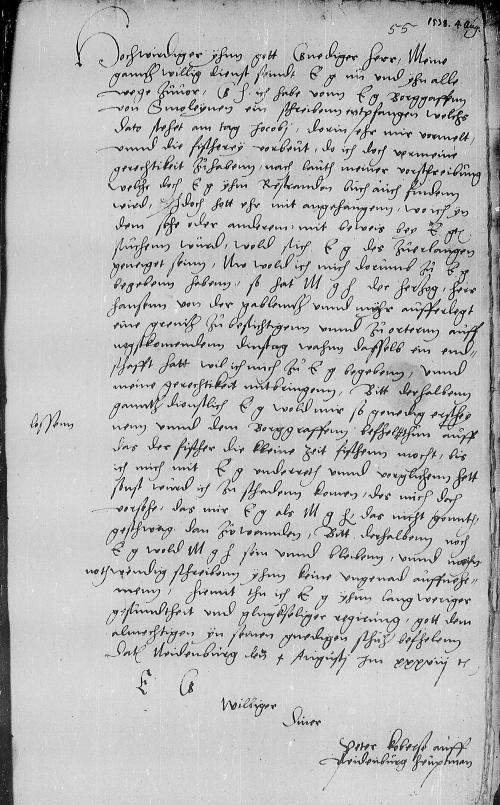 55
1538. 4 Aug.
Hochwirdiger yhnn gott Gnediger herr, Meine
gantz willig dienst seindt E g nü und yhn alle
wege zuuor, G h ich habe vonn E g Borggraffenn
von Smoleynen ein schreibenn entpfangen welchs
dato stehet am tag Jacobj, dorin ehr mir vormelt,
unnd die fischerey vorbeut, do ich doch vermeine
gerechtikeit zuhabenn, nach lauth meiner vorschreibung
welche doch E g yhm buch auch finden
wird, Jdoch hatt ehr mit angehangenn, wo ich yn
dem sehe oder anderem mit beweis bey E g
suchenn würd, wold sich E g des zuerlangen
geneiget seinn, Nw wold ich mich dorumb zu E g
begebenn habenn, so hat M g h der herzog, herr
hansenn von der gablentz unnd mihr aufferlegt
eine grenitz zu besichtigenn unnd zu orterenn auff
negstkomendenn dinstag wahnn dasselb ein end-
schafft hatt wil ich mich zu E g begebenn, unnd
meine gerechtikeit mitbringenn, Bitt derhalbenn
gantz dienstlich E g wold mir so genedig
nenn unnd dem Borggraffenn befhelhenn auff
lossenn
das der fischer die kleine zeit fischenn mocht, bis
ich mich mit E g underreth unnd vorglichenn hett
sonst würd ich zu schadenn komen, des mich doch
vorsehe, das mir E g als M g h das nicht gonnth,
geschweig dan zuwenden, Bitt derhalbenn noch
E g wold M g h sein unnd bleibenn, unnd mein
notwendig schreibenn yhnn keine ungenad auffnehe-
menn, hiemit thu ich E g yhnn langweriger
gesündtheit und glückseliger regirung, gott dem
almechtigen yn seinen gnedigen schutz befhelenn
Dat Neidenburg den 4 Augustj Jm xxxviij
E G
Williger
Diner
Peter auff
Neidenburg heuptman